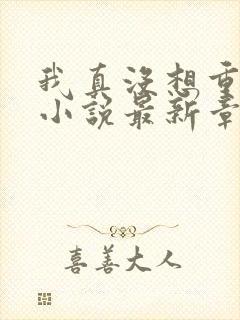 我真没想重
小说最新章
喜善大人